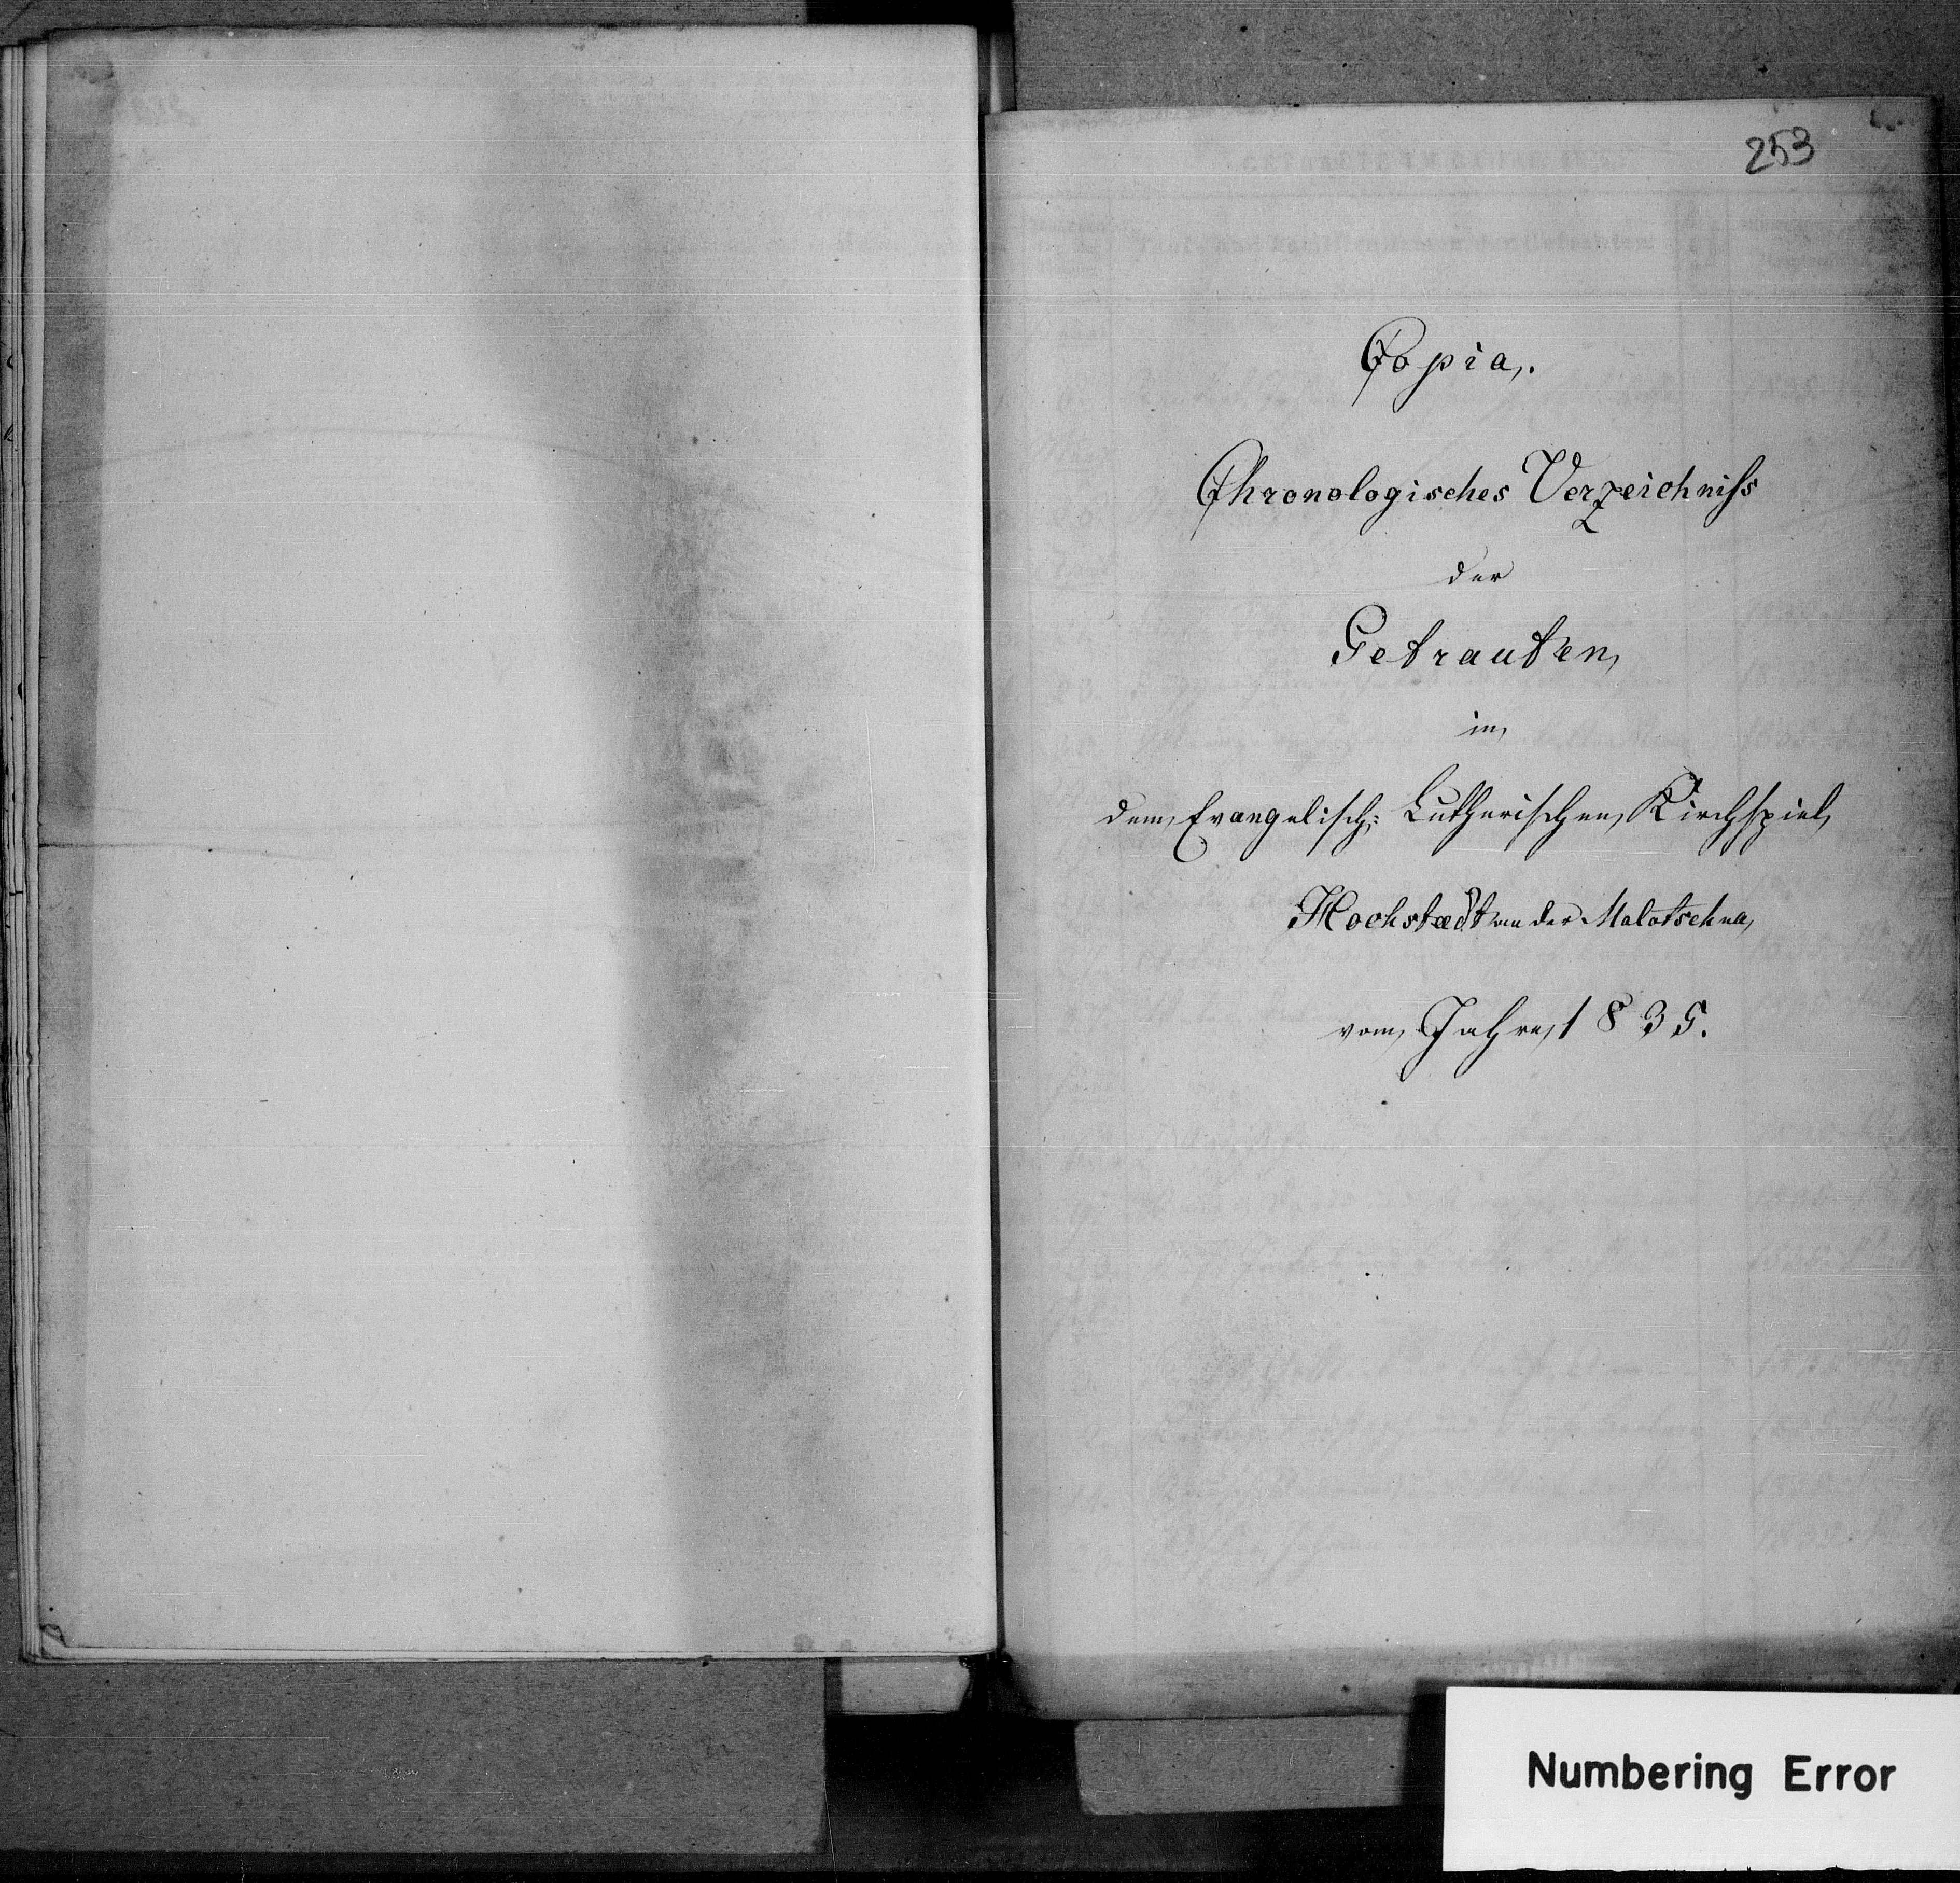 253
Copia.
Chronologisches Verzeichniss
der
Getrauten
in
dem Evangelisch: Lutherischen Kirchspiel
Hochstædt an der Malotschna
vom Jahre 1835.
Numbering Error